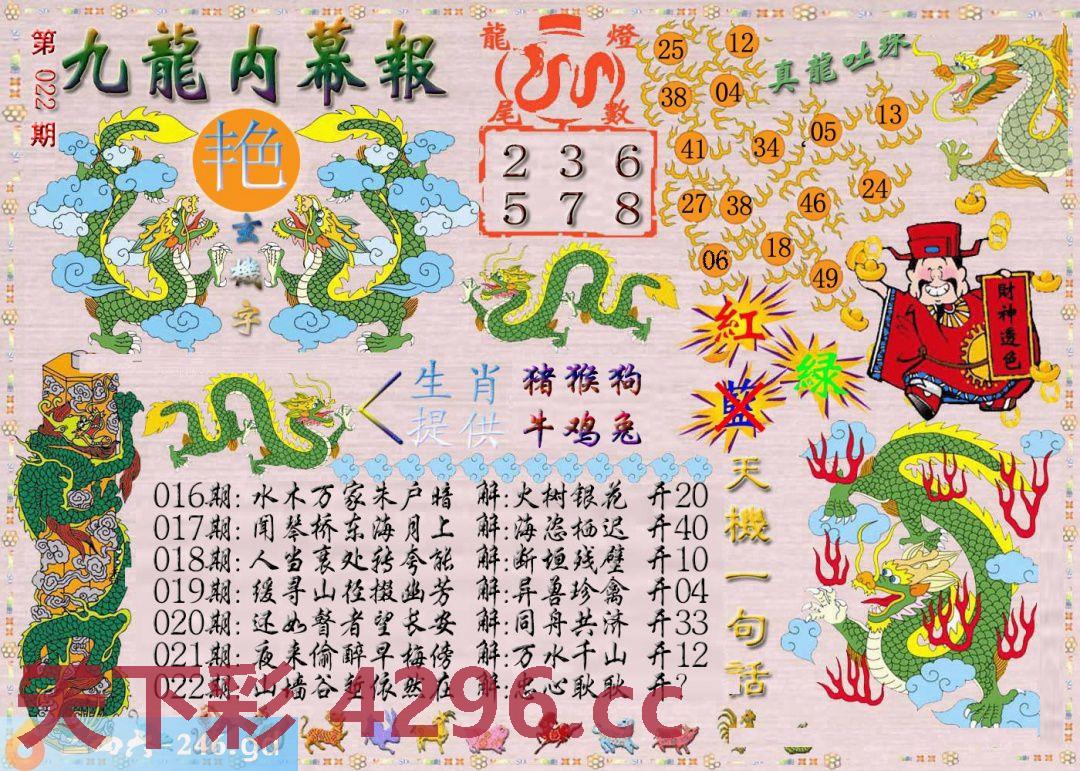 第022期
九龍内幕報
艳
玄機字
龍燈
尾數
2 3 6
5 7 8
真龍吐珠
25 12
38 04
41 34 05 13
27 38 46 24
06 18 49
財神透色
紅
綠
藍
生肖 猪猴狗
提供 牛鸡兔
016期:水木万家朱户暗 解:火树银花 开20
017期:闻琴桥东海月上 解:海恣栖迟 开40
018期:人当衰处转夸能 解:断垣残壁 开10
019期:缓寻山径掇幽芳 解:异兽珍禽 开04
020期:还如瞽者望长安 解:同舟共济 开33
021期:夜来偷醉早梅傍 解:万水千山 开12
022期:山墙谷堑依然在 解:忠心耿耿 开?
天機一句話
天下彩 4296.cc
246.gd